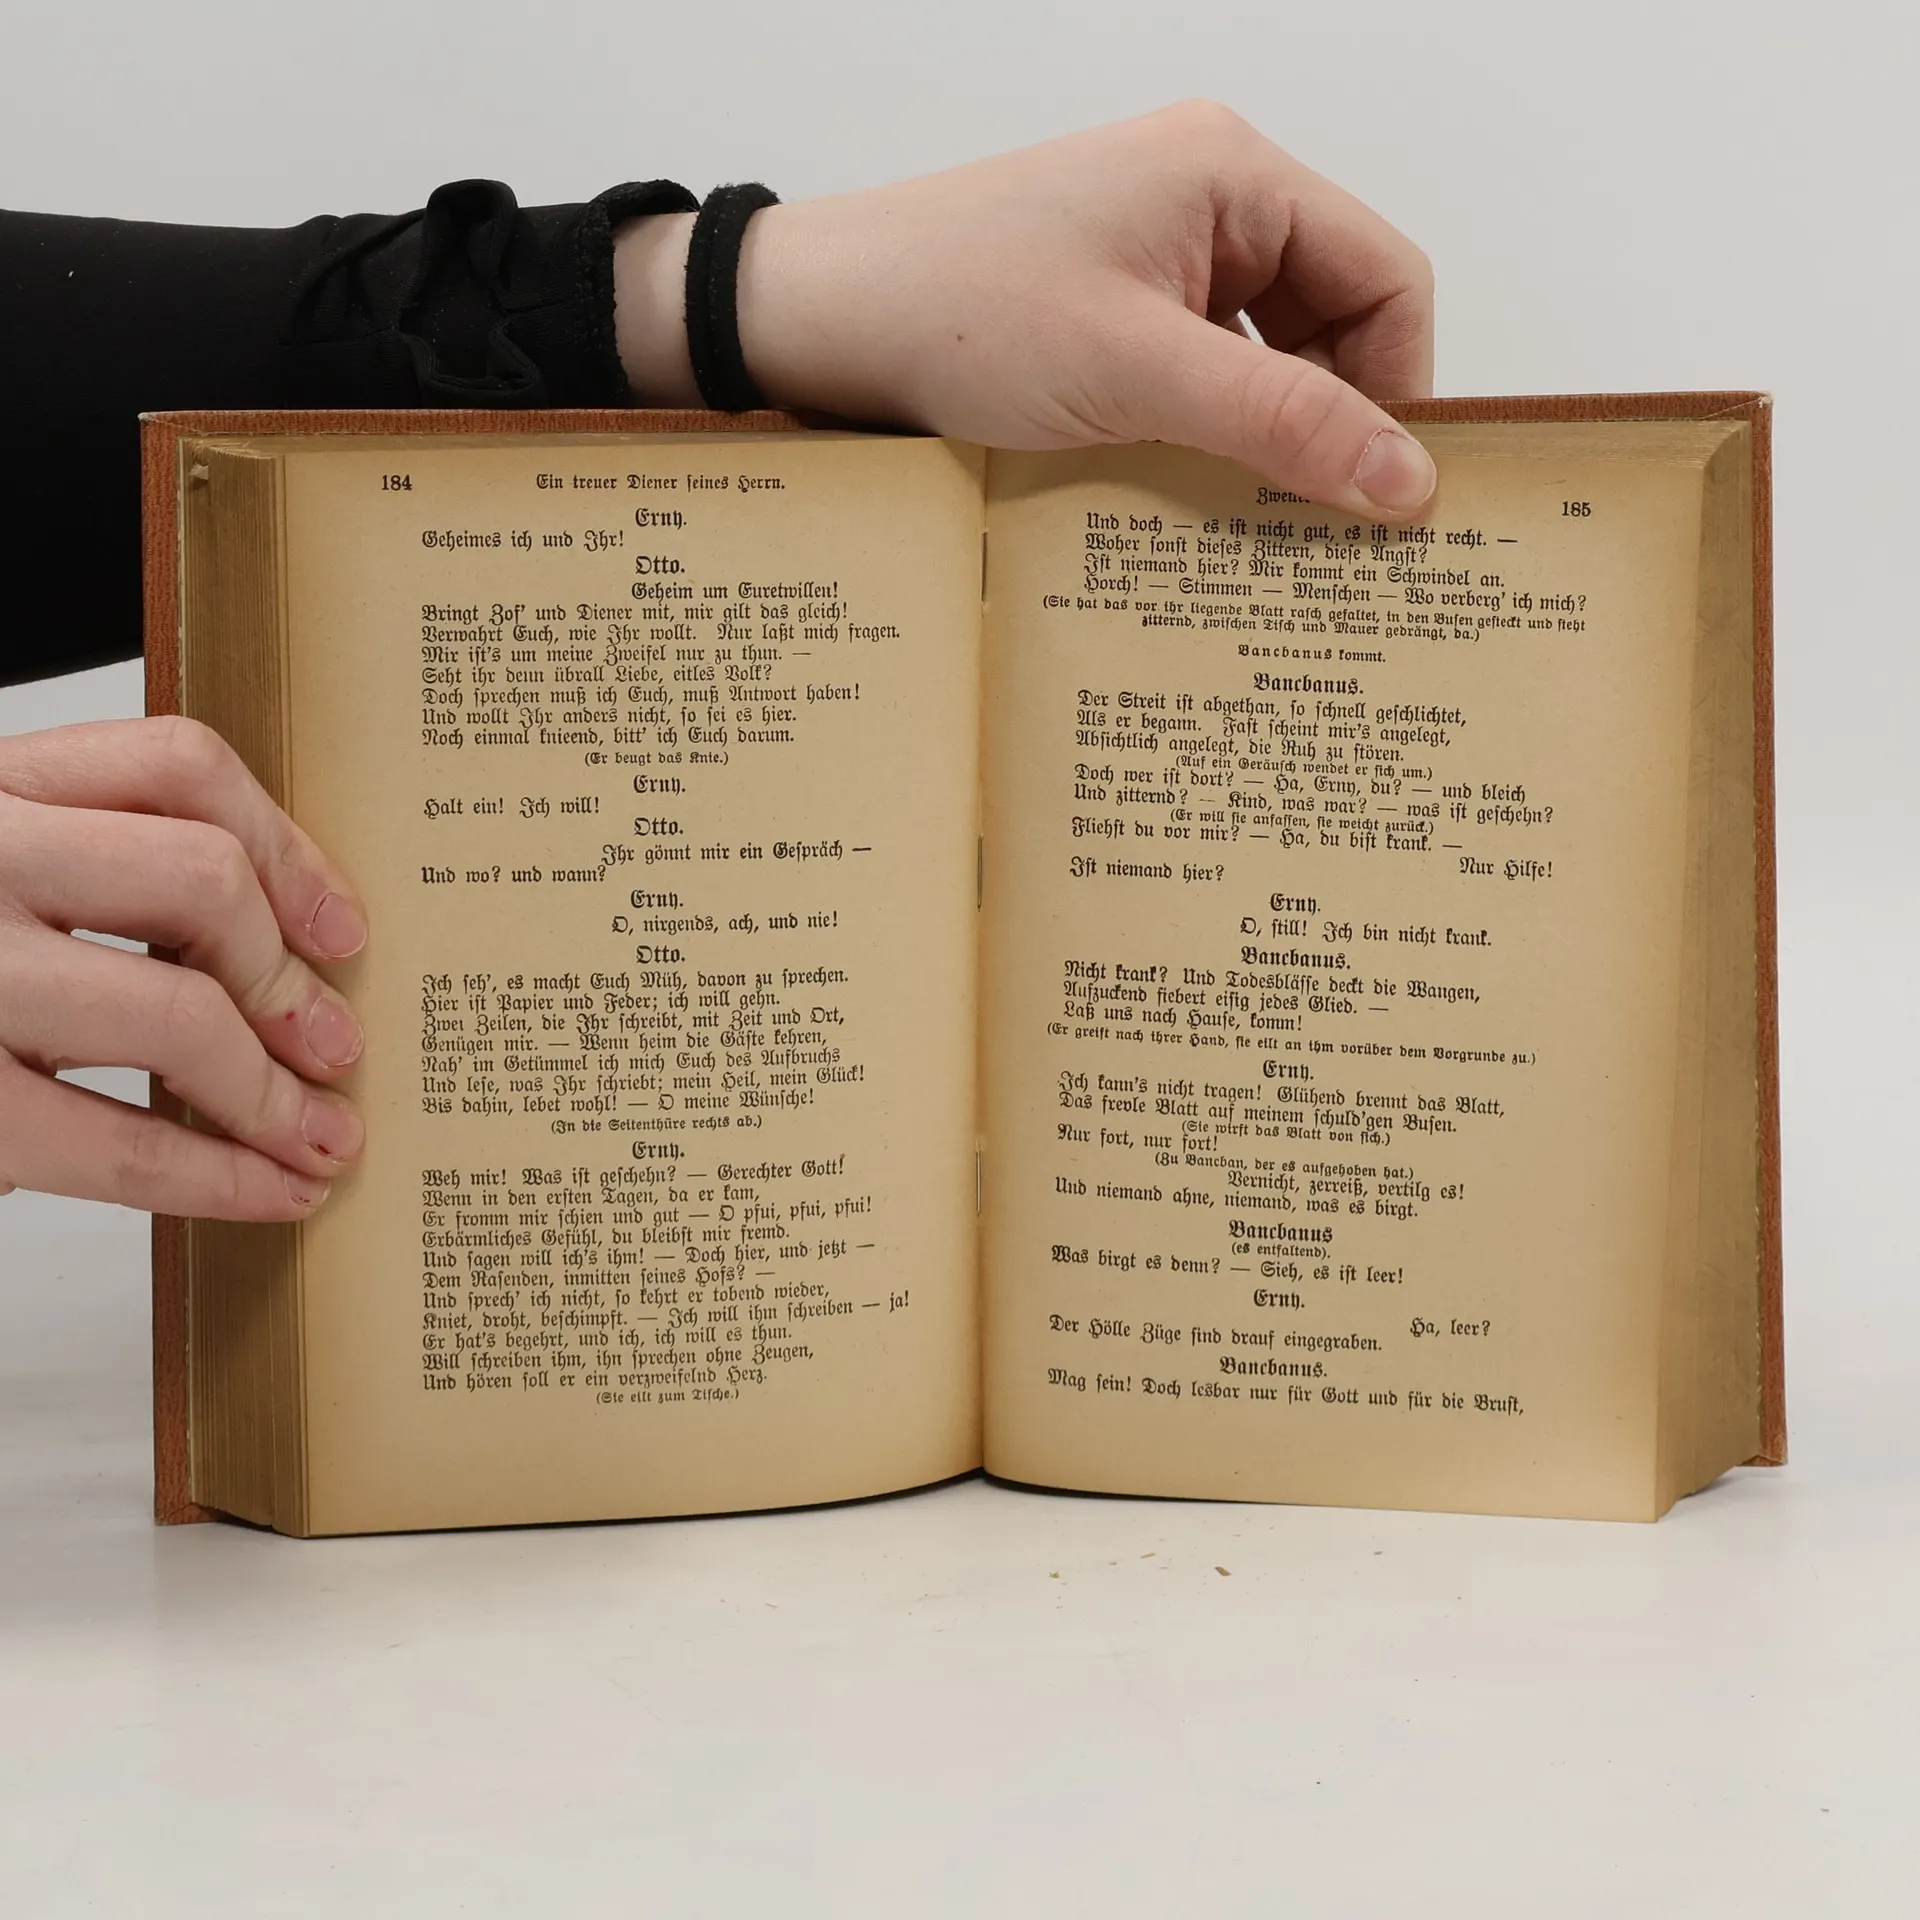 184 Ein treuer Diener seines Herrn.
Erny.
Geheimes ich und Ihr!
Otto.
Geheim um Euretwillen!
Bringt Zof' und Diener mit, mir gilt das gleich!
Verwahrt Euch, wie Ihr wollt. Nur laßt mich fragen.
Mir ist's um meine Zweifel nur zu thun. —
Seht ihr denn übrall Liebe, eitles Volk?
Doch sprechen muß ich Euch, muß Antwort haben!
Und wollt Ihr anders nicht, so sei es hier.
Noch einmal knieend, bitt' ich Euch darum.
(Er beugt das Knie.)
Erny.
Halt ein! Ich will!
Otto.
Ihr gönnt mir ein Gespräch —
Und wo? und wann?
Erny.
O, nirgends, ach, und nie!
Otto.
Ich seh', es macht Euch Müh, davon zu sprechen.
Hier ist Papier und Feder; ich will gehn.
Zwei Zeilen, die Ihr schreibt, mit Zeit und Ort,
Genügen mir. — Wenn heim die Gäste kehren,
Nah' im Getümmel ich mich Euch des Aufbruchs
Und lese, was Ihr schriebt; mein Heil, mein Glück!
Bis dahin, lebet wohl! — O meine Wünsche!
(In die Seitenthüre rechts ab.)
Erny.
Weh mir! Was ist geschehn? — Gerechter Gott!
Wenn in den ersten Tagen, da er kam,
Er fromm mir schien und gut — O pfui, pfui, pfui!
Erbärmliches Gefühl, du bleibst mir fremd.
Und sagen will ich's ihm! — Doch hier, und jetzt —
Dem Rasenden, inmitten seines Hofs? —
Und sprech' ich nicht, so kehrt er tobend wieder,
Kniet, droht, beschimpft. — Ich will ihm schreiben — ja!
Er hat's begehrt, und ich, ich will es thun.
Will schreiben ihm, ihn sprechen ohne Zeugen,
Und hören soll er ein verzweifelnd Herz.
(Sie eilt zum Tische.)
185
Und doch — es ist nicht gut, es ist nicht recht. —
Woher sonst dieses Zittern, diese Angst?
Ist niemand hier? Mir kommt ein Schwindel an.
Horch! — Stimmen — Menschen — Wo verberg' ich mich?
(Sie hat das vor ihr liegende Blatt rasch gefaltet, in den Busen gesteckt und steht
zitternd, zwischen Tisch und Mauer gedrängt, da.)
Bancbanus kommt.
Bancbanus.
Der Streit ist abgethan, so schnell geschlichtet,
Als er begann. Fast scheint mir's angelegt,
Absichtlich angelegt, die Ruh zu stören.
(Auf ein Geräusch wendet er sich um.)
Doch wer ist dort? — Ha, Erny, du? — und bleich
Und zitternd? — Kind, was war? — was ist geschehn?
(Er will sie anfassen, sie weicht zurück.)
Fliehst du vor mir? — Ha, du bist krank. —
Nur Hilfe!
Ist niemand hier?
Erny.
O, still! Ich bin nicht krank.
Bancbanus.
Nicht krank? Und Todesblässe deckt die Wangen,
Aufzuckend fiebert eisig jedes Glied. —
Laß uns nach Hause, komm!
(Er greift nach ihrer Hand, sie eilt an ihm vorüber dem Vorgrunde zu.)
Erny.
Ich kann's nicht tragen! Glühend brennt das Blatt,
Das frevle Blatt auf meinem schuld'gen Busen.
(Sie wirft das Blatt von sich.)
Nur fort, nur fort!
(Zu Bancban, der es aufgehoben hat.)
Vernicht, zerreiß, vertilg es!
Und niemand ahne, niemand, was es birgt.
Bancbanus
(es entfaltend).
Was birgt es denn? — Sieh, es ist leer!
Erny.
Ha, leer?
Der Hölle Züge sind drauf eingegraben.
Bancbanus.
Mag sein! Doch lesbar nur für Gott und für die Brust,